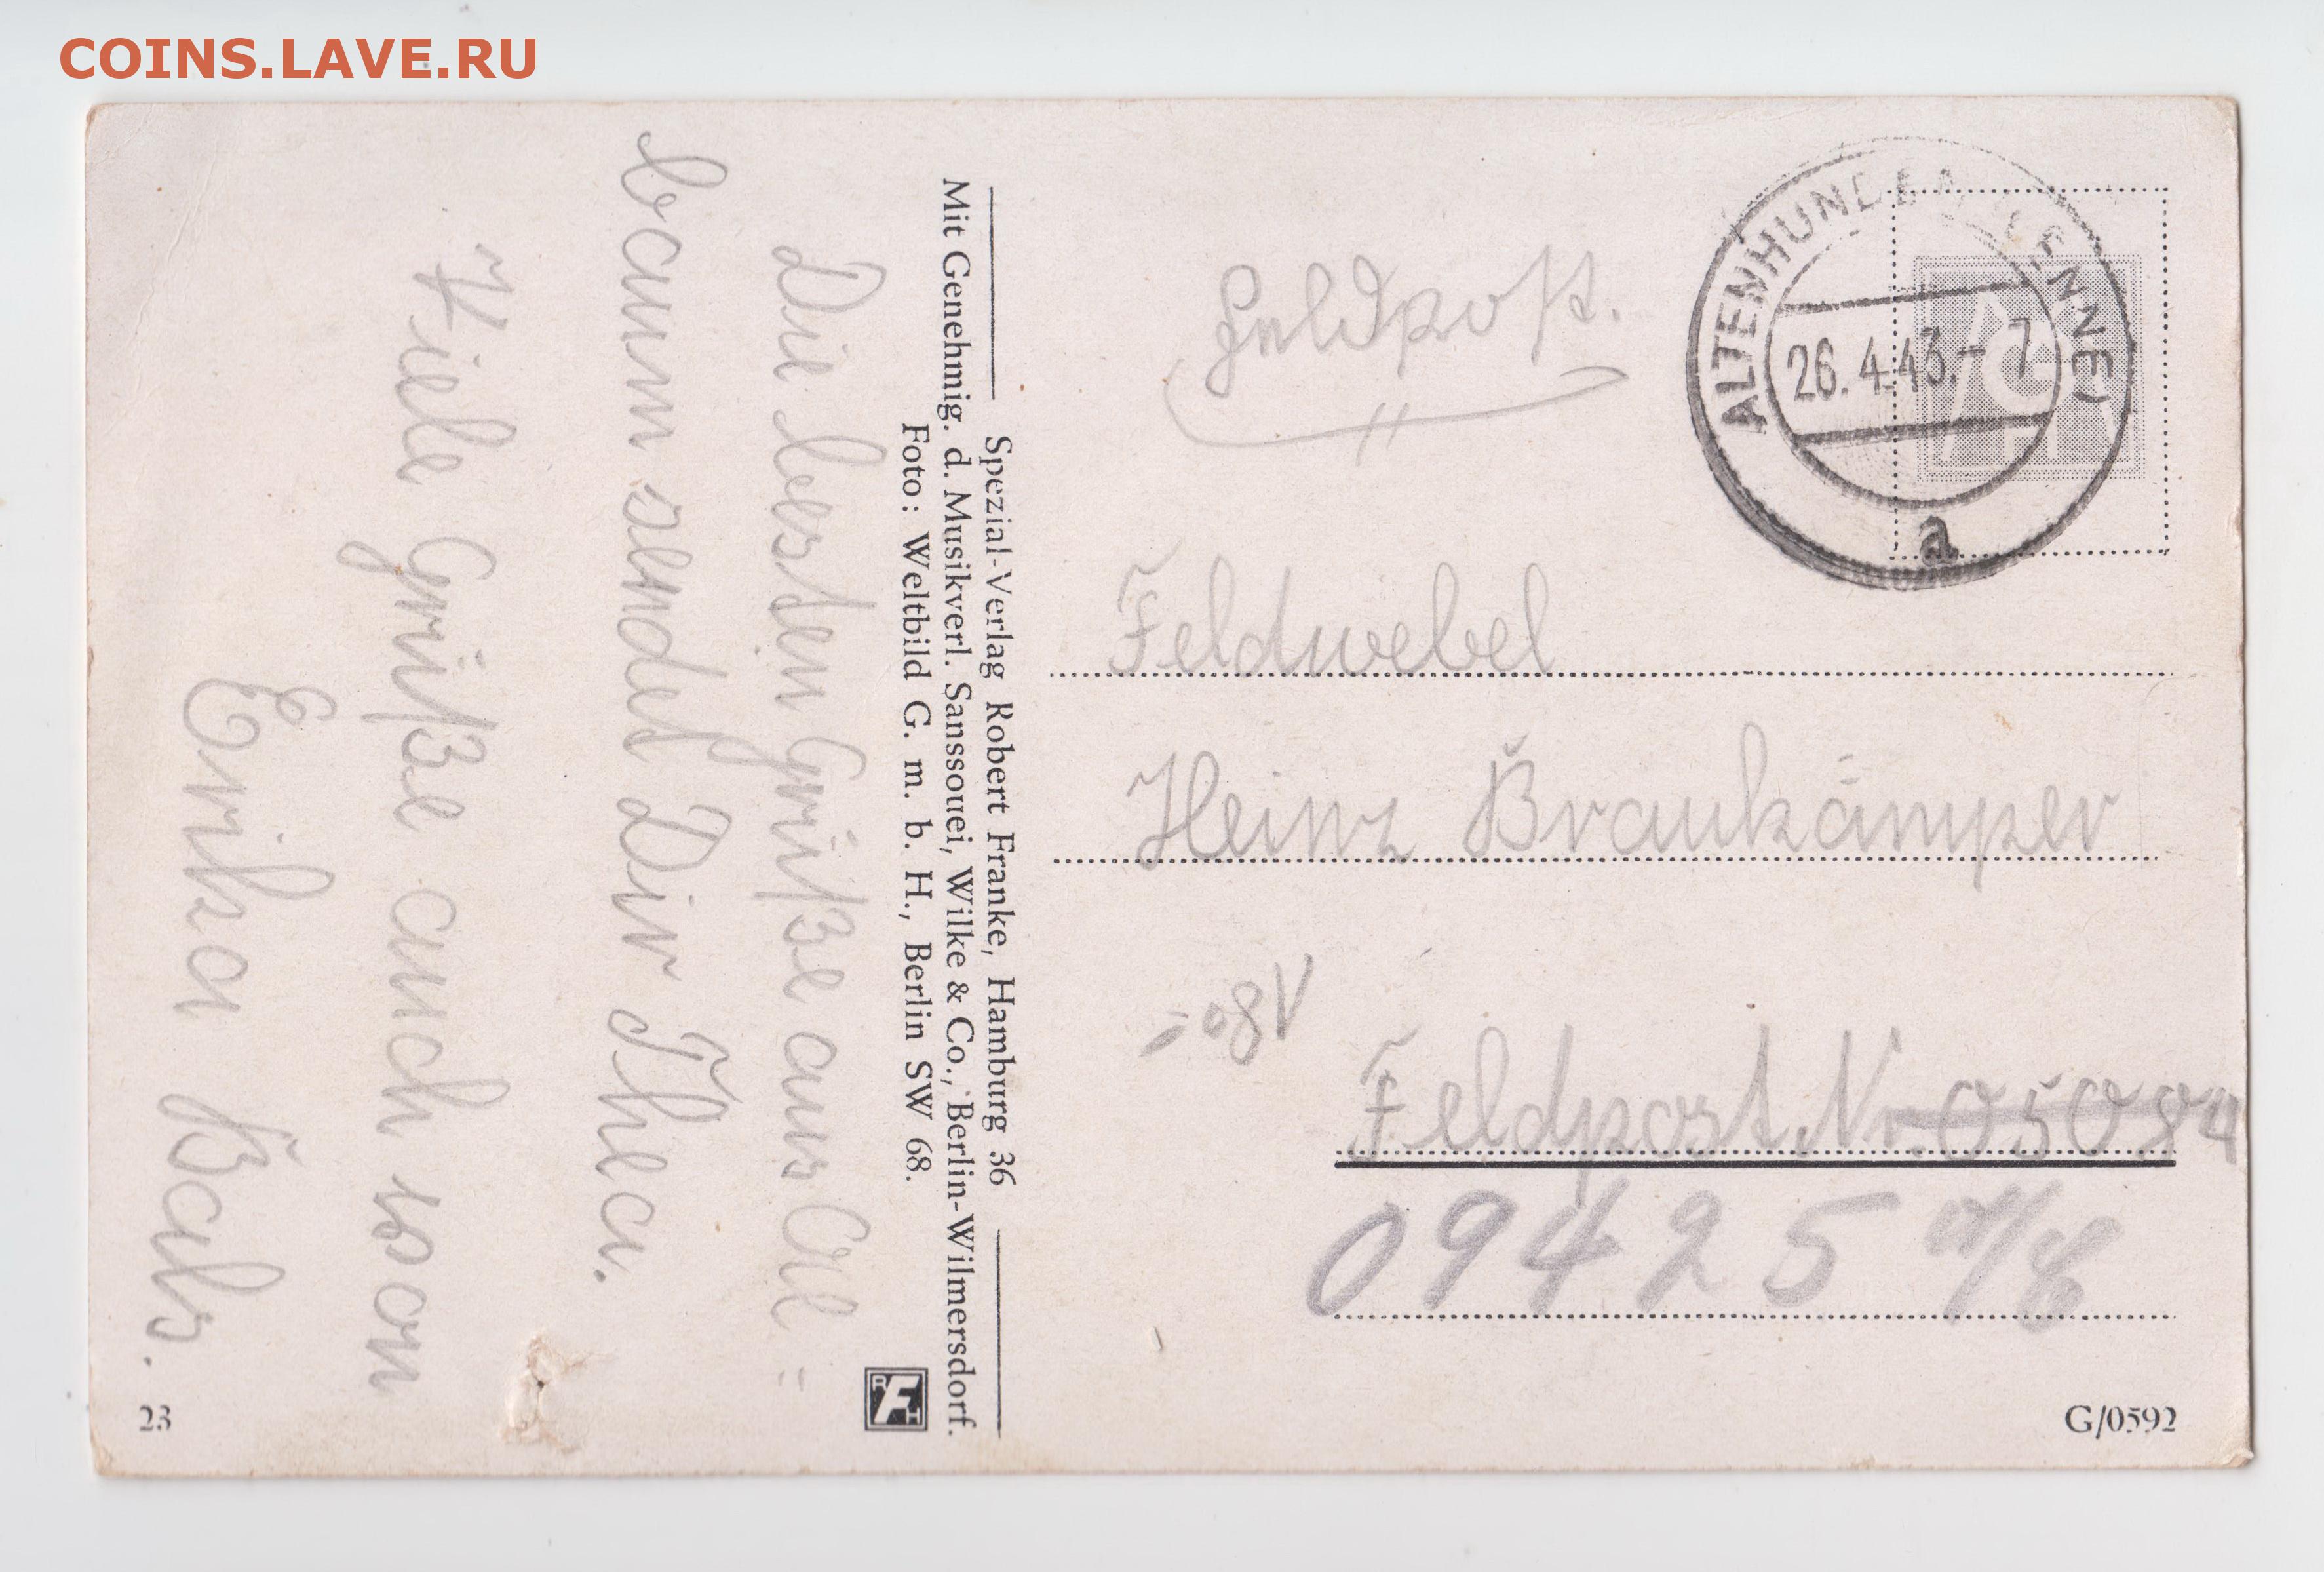 COINS.LAVE.RU
ALTENHUNDEM (LENNE)
26.4.43.- 7
a
Feldpost.
Feldwebel
Heinz Braukämper
Feldpost. Nr. 05084
09425
G/0592
Spezial-Verlag Robert Franke, Hamburg 36
Mit Genehmig. d. Musikverl. Sanssouei, Wilke & Co., Berlin-Wilmersdorf.
Foto: Weltbild G. m. b. H., Berlin SW 68.
RFH
Die besten Grüße aus Oel=
baum sendet Dir Thea.
Viele Grüße auch von
Erika Bals.
23